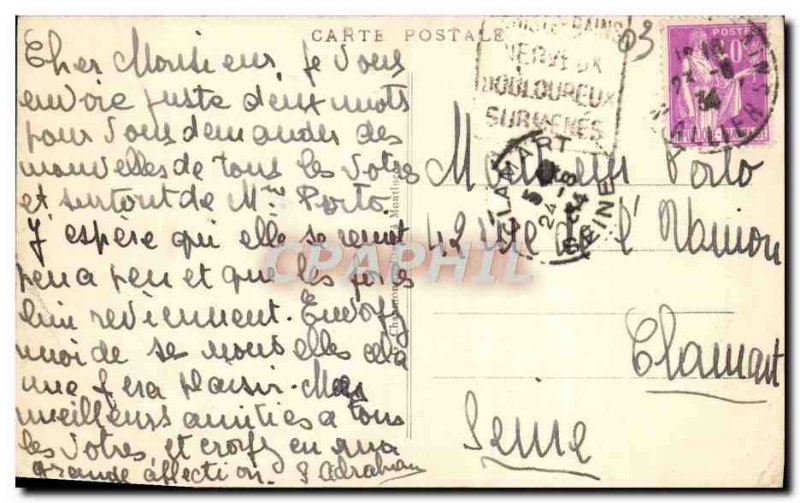 CARTE POSTALE
Cher Monsieur, je vous
envoie juste deux mots
pour vous demander des
nouvelles de tous les votres
et surtout de Mme Porto.
J'espère qui elle se remit
peu a peu et que les forces
lui reviennent. Envoyez
moi de ses nouvelles cela
me fera plaisir. Mes
meilleurs amitiés a tous
les votres, et croyez en ma
grande affection.
NERVEUX
DOULOUREUX
SURMENÉS
03
POSTES
23-8
34
CLAMART
24-8
34
SEINE
Monsieur Porto
42 de l'Union
Clamart
Seine
CPAPHIL